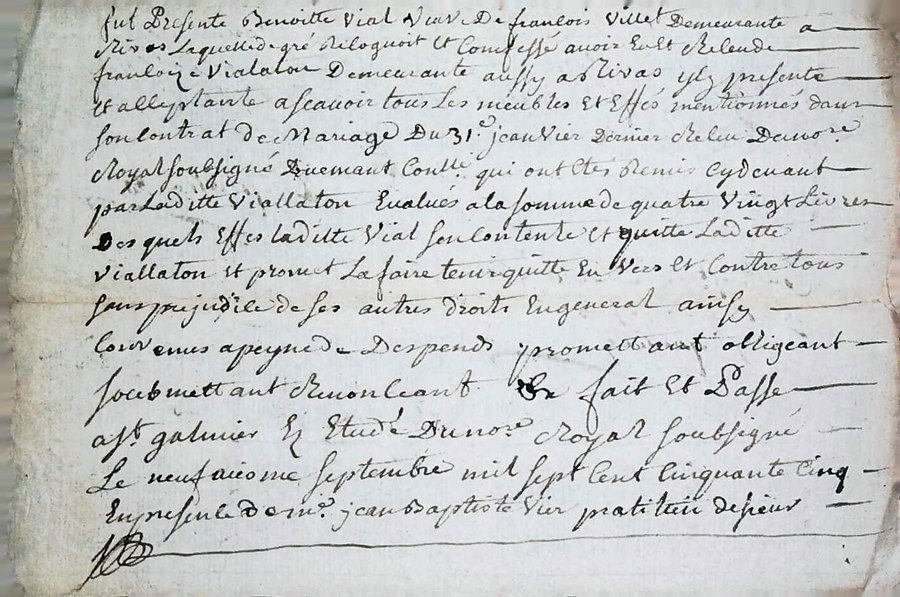 fut Presente Benoitte Vial Veuve De francois Villet Demeurante a
Rivas Laquelle de gré Reconnoit Et Confesse avoir Eu Et Receu de
francoize Vialaton Demeurante aussy a Rivas icy presente
Et acceptante ascavoir tous Les meubles Et Effés mentionnés dans
son Contrat de Mariage Du 31e. jeanvier Dernier Receu Du nore.
Royal soubsigné qui ont Etés Remis cy devant
par Laditte Viallaton Evalués a la somme de quatre Vingt Livres
Desquels Effes laditte Vial sen contente Et quitte Laditte
Viallaton Et promet La faire tenir quitte En Vers Et Contre tous
sans prejudice de ses autres droits En general ainsy
Convenus a peyne de Despends promettant obligeant
soubmettant Renonceant fait Et Passe
a st galmier En Etude Du nore Royal soubsigné
Le neufvieme septembre mil sept Cent Cinquante Cinq
En presence de me. jean Baptiste Vier praticien de sieur